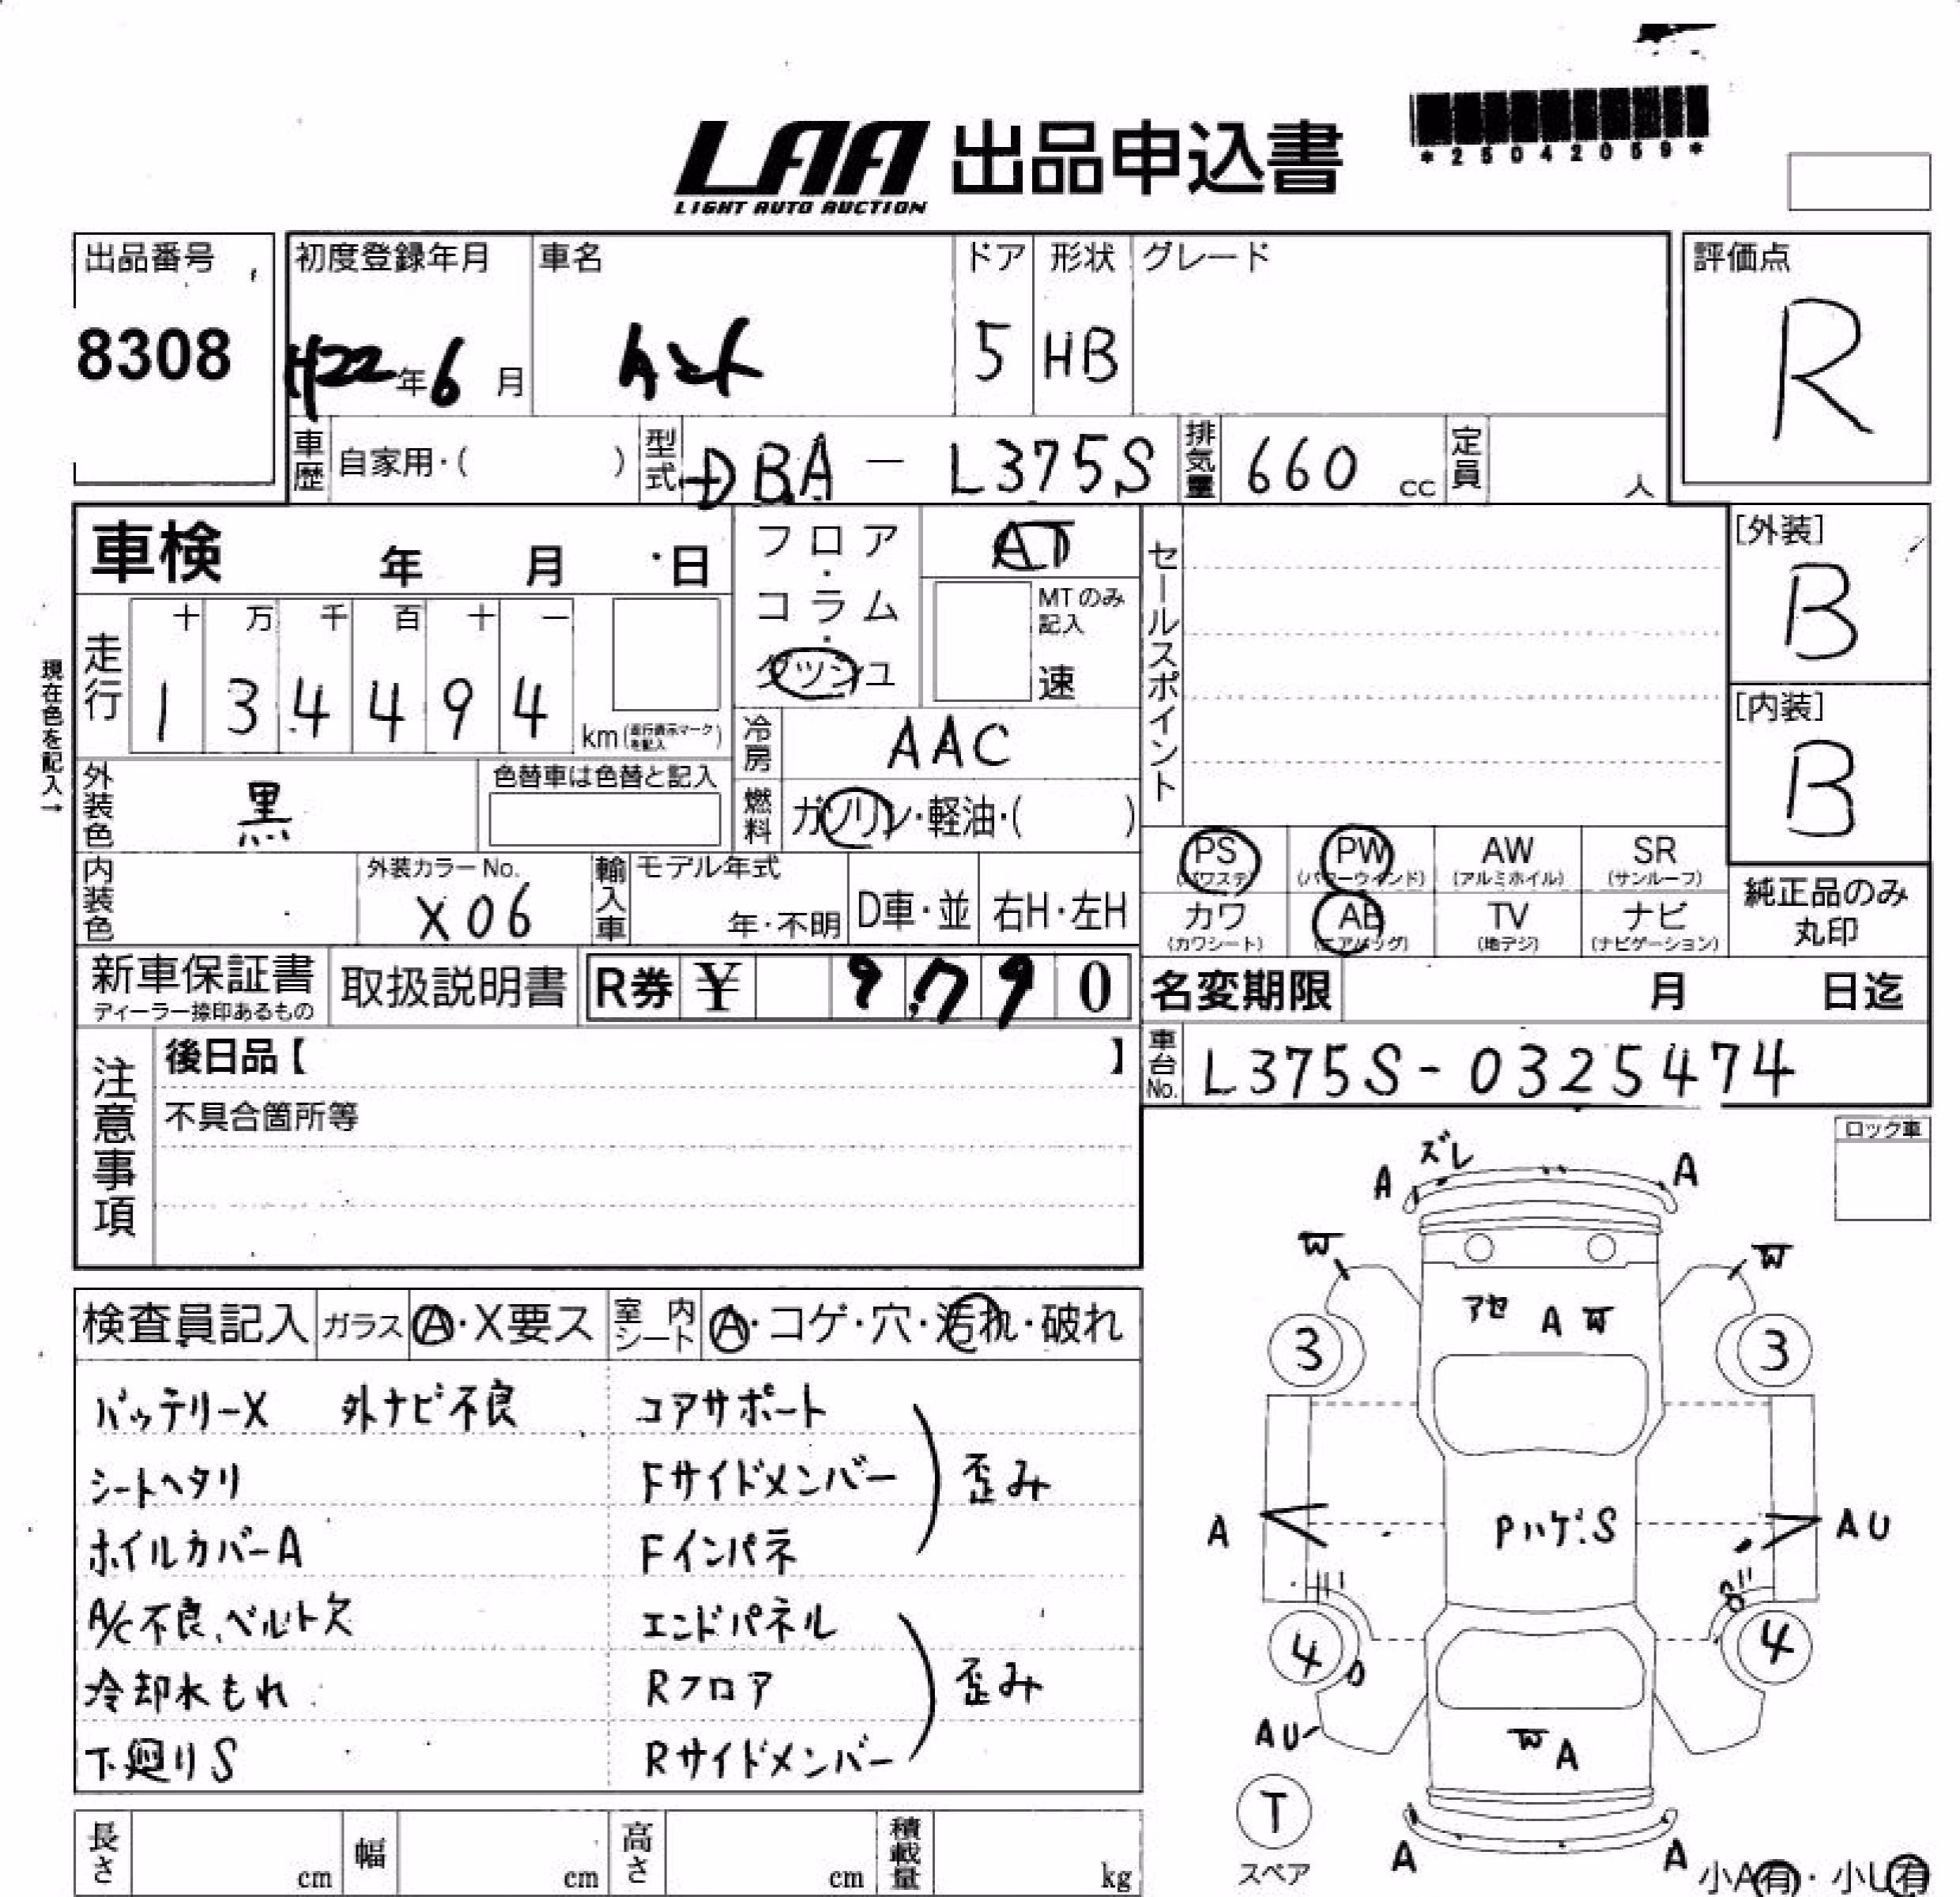 LAA 出品申込書
LIGHT AUTO AUCTION
*25042059*
出品番号
8308
初度登録年月
H22年6月
車名
タント
ドア
5
形状
HB
グレード
評価点
R
車歴 自家用・( )
型式 DBA - L375S
排気量 660 cc
定員 人
車検 年 月 日
フロア・コラム・ダッシュ
AT
MTのみ記入
速
セールスポイント
[外装]
B
[内装]
B
現在色を記入→
走行
十 万 千 百 十 一
1 3 4 4 9 4
km(走行表示マークを記入)
冷房 AAC
燃料 ガソリン・軽油・( )
外装色 黒
色替車は色替と記入
内装色
外装カラーNo.
X06
輸入車
モデル年式
年・不明
D車・並
右H・左H
PS (パワステ)
PW (パワーウインド)
AW (アルミホイル)
SR (サンルーフ)
カワ (カワシート)
AB (エアバッグ)
TV (地デジ)
ナビ (ナビゲーション)
純正品のみ
丸印
新車保証書
ディーラー捺印あるもの
取扱説明書
R券 ¥ 9,790
名変期限 月 日迄
車台No. L375S-0325474
注意事項
後日品【 】
不具合箇所等
ロック車
検査員記入
ガラス A・X要ス
室内シート A・コゲ・穴・汚れ・破れ
バッテリーX 外ナビ不良
シートヘタリ
ホイルカバーA
A/C不良、ベルト欠
冷却水もれ
下廻りS
コアサポート
Fサイドメンバー
Fインパネ
歪み
エンドパネル
Rフロア
Rサイドメンバー
歪み
ズレ
A A
W W
アセ A W
3 3
A PハゲS AU
4 4
AU
W A
T
スペア
A A
小A有・小U有
長さ cm
幅 cm
高さ cm
積載量 kg